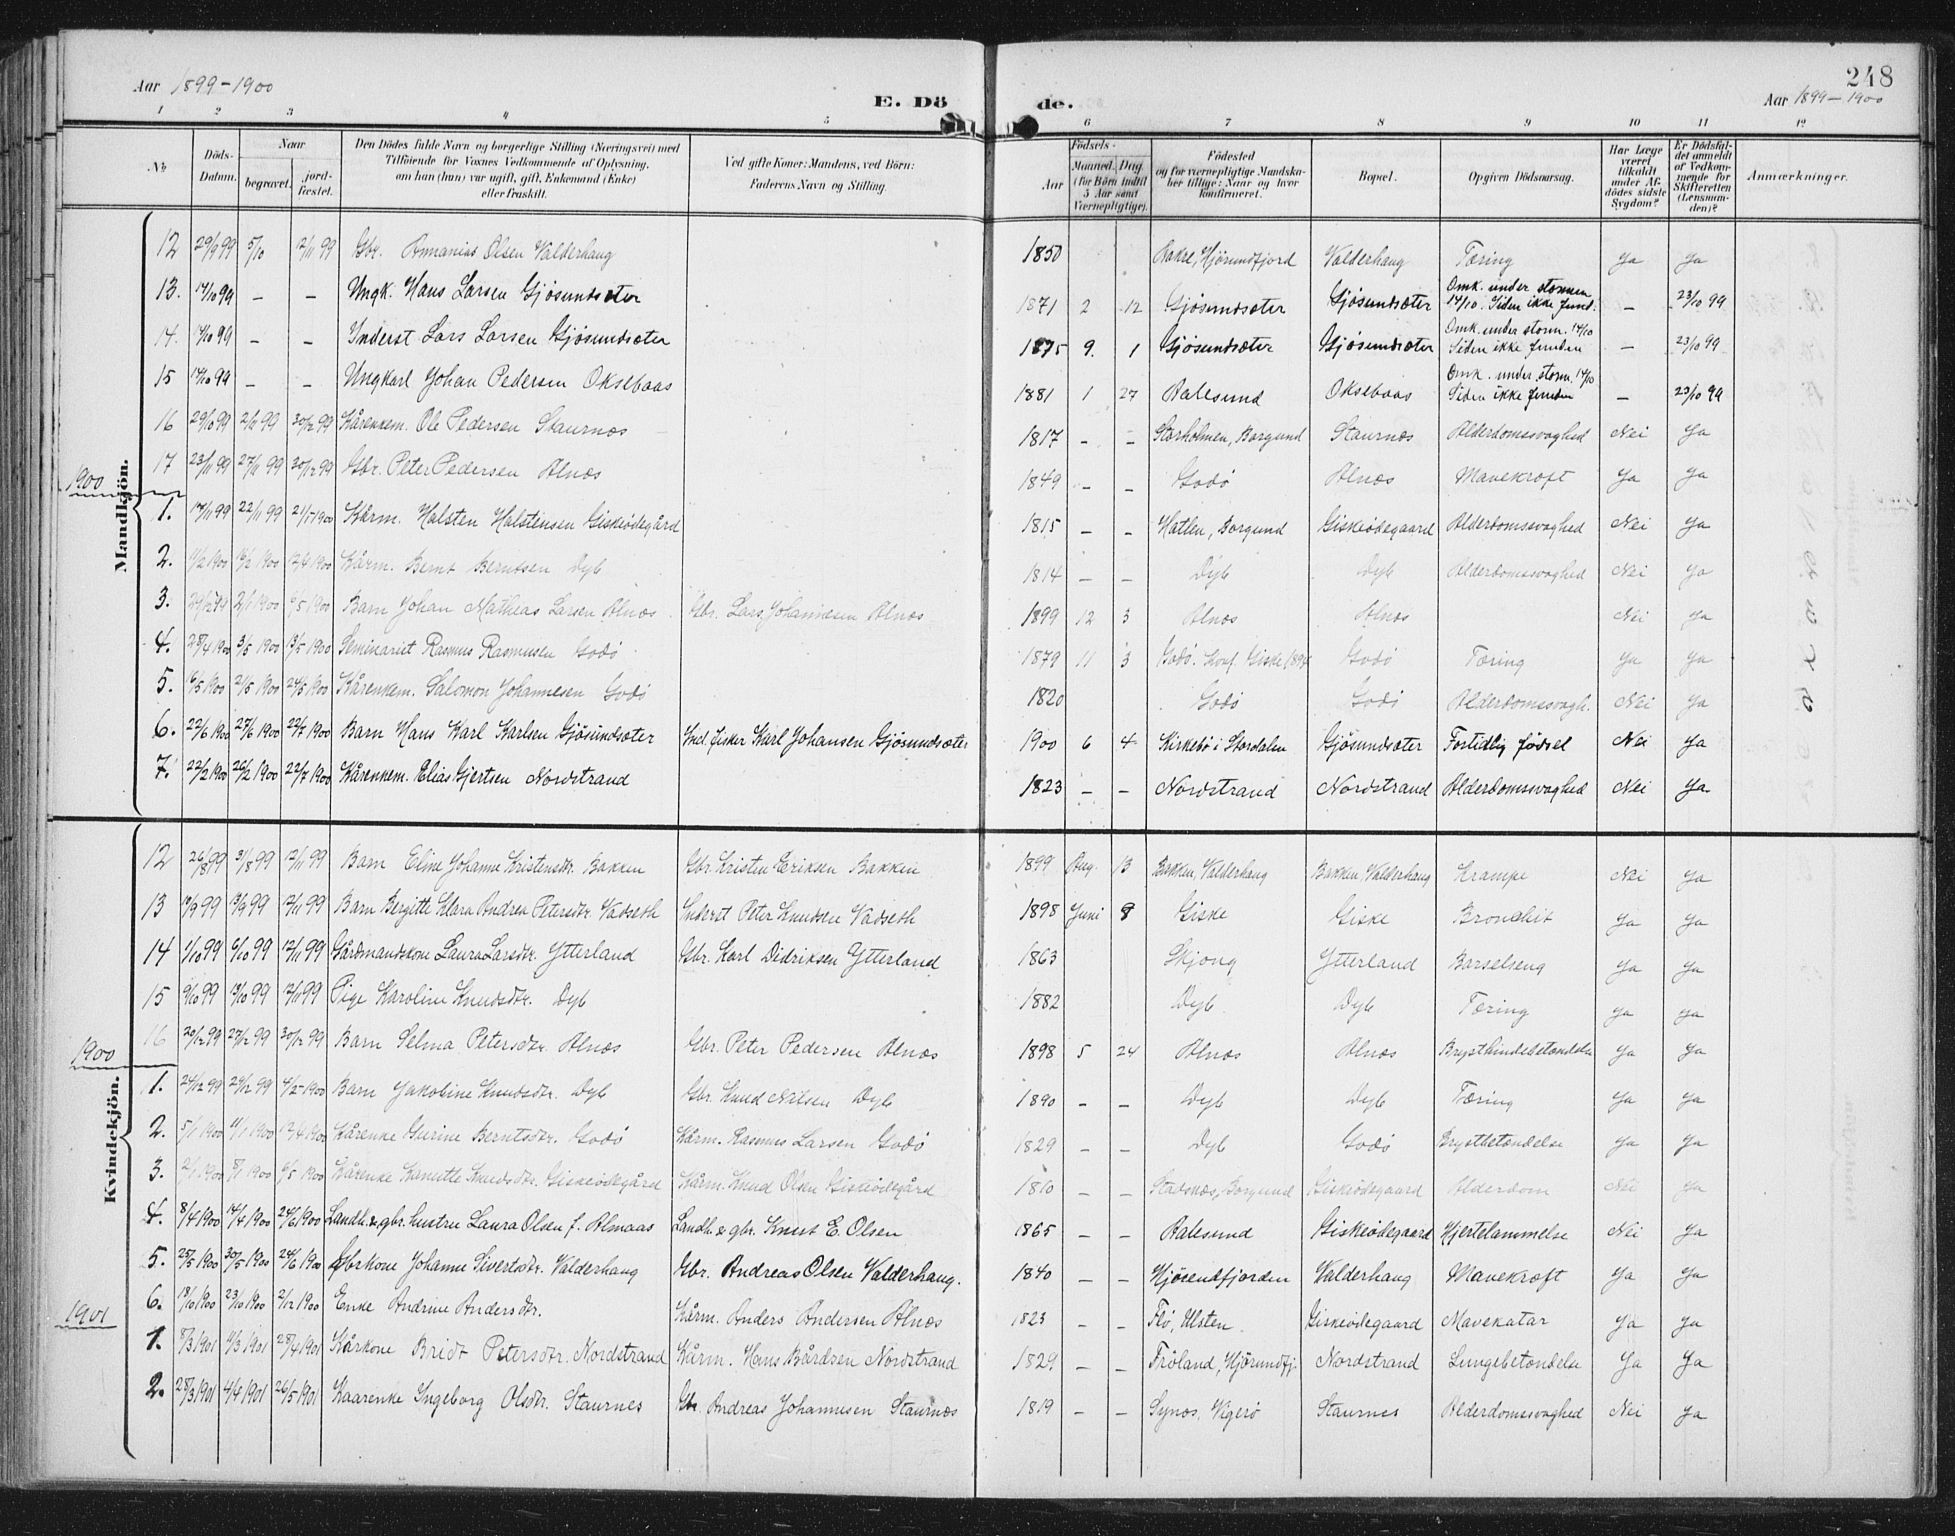 Aar 1899-1900
E. Dö de.
248
Aar 1899-1900
1 2 3 4 5 6 7 8 9 10 11 12
No.
Döds-Datum.
Naar
begravet.
jordfæstet.
Den Dödes fulde Navn og borgerlige Stilling (Næringsvei) med Tilföiende for Voxnes Vedkommende af Oplysning, om han (hun) var ugift, gift, Enkemand (Enke) eller fraskilt.
Ved gifte Koner: Mandens, ved Börn: Faderens Navn og Stilling.
Födsels-
Aar
Maaned. Dag.
(for Börn indtil 5 Aar samt Værnepligtige).
Födested og for værnepligtige Mandskaber tillige: Naar og hvor konfirmeret.
Bopæl.
Opgiven Dödsaarsag.
Har Læge været tilkaldt under Afdödes sidste Sygdom?
Er Dödsfaldet anmeldt af Vedkommende for Skifteretten (Lensmanden)?
Anmærkninger.
Mandkjön.
12 29/9 99 5/10 12/11 99 Gbr. Annanias Olsen Valderhaug 1850 Bakke, Hjörundfjord Valderhaug Tæring Ja Ja
13. 14/10 99 - - Ungk. Hans Larsen Gjösundsæter 1871 2 12 Gjösundsæter Gjösundsæter Omk. under stormen 14/10. Siden ikke fund. - 23/10 99
14. 14/10 99 - - Inderst Lars Larsen Gjösundsæter 1875 9. 1 Gjösundsæter Gjösundsæter Omk. under storm. 14/10 Siden ikke funden - 23/10 99
15 14/10 99 - - Ungkarl Johan Pedersen Oksebaas 1881 1 27 Aalesund Oksebaas Omk. under storm. 14/10 Siden ikke funden - 23/10 99
16 29/10 99 2/11 99 30/12 99 Kårenkem. Ole Pedersen Staurnes 1817 - - Storholmen, Borgund Staurnæs Alderdomssvaghed Nei Ja
17 23/11 99 27/11 99 30/12 99 Gbr. Peter Pedersen Alnæs 1849 - - Godø Alnæs Mavekræft Ja Ja
1900
1. 17/11 99 22/11 99 21/1 1900 Kårm. Halsten Halstensen Giskeødegård 1815 - - Hatlen, Borgund Giskeødegaard Alderdomssvaghed Nei Ja
2. 11/2 1900 16/2 1900 12/4 1900 Kårm. Bernt Berntsen Dyb 1814 - - Dyb Dyb Alderdomssvaghed Nei Ja
3. 29/12 99 2/1 1900 6/5 1900 Barn Johan Mathias Larsen Alnæs Gbr. Lars Johannesen Alnæs 1899 12 3 Alnæs Alnæs Nei Ja
4. 28/4 1900 3/5 1900 13/5 1900 Seminarist Rasmus Rasmusen Godø 1879 11 3 Godø. Konf. Giske 1894 Godø Tæring Ja Ja
5. 6/5 1900 21/5 1900 24/5 1900 Kårenkem. Salomon Johannesen Godø 1820 Godø Godø Alderdomssvagh. Nei Ja
6. 22/6 1900 27/6 1900 22/7 1900 Barn Hans Karl Karlsen Gjösundsæter Ind. fisker Karl Johansen Gjösundsæter 1900 6 4 Kirkebö i Stordalen Gjösundsæter Fortidlig födsel Nei Ja
7. 22/2 1900 26/2 1900 22/7 1900 Kårenkem. Elias Gjertsen Nordstrand 1823 - - Nordstrand Nordstrand Alderdomssvaghed Nei Ja
Kvindekjön.
12 26/8 99 31/8 99 12/11 99 Barn Eline Johanne Kristensdtr. Bakken Gbr. Kristen Eriksen Bakken 1899 Aug. 13 Bakken, Valderhaug Bakken, Valderhaug Krampe Nei Ja
13 10/9 99 13/9 99 12/11 99 Barn Bergitte Klara Andrea Petersdtr. Vadseth Inderst Peter Knudsen Vadseth 1898 Juni 8 Giske Giske Bronchit Ja Ja
14 1/10 99 6/10 99 12/11 99 Gårdmandskone Laura Larsdtr. Ytterland Gbr. Karl Didriksen Ytterland 1863 Skjong Ytterland Barselseng Ja Ja
15 9/10 99 13/10 99 12/11 99 Pige Karoline Knudsdtr. Dyb 1882 Dyb Dyb Tæring Ja Ja
16 20/12 99 27/12 99 30/12 99 Barn Selma Petersdtr. Alnæs Gbr. Peter Pedersen Alnæs 1898 5 24 Alnæs Alnæs Brysthindebetændelse Ja Ja
1900
1. 24/12 99 29/12 99 4/2 1900 Barn Jakobine Knudsdtr. Dyb Gbr. Knud Nilsen Dyb 1890 - - Dyb Dyb Tæring Ja Ja
2. 5/1 1900 11/1 1900 12/4 1900 Kårenke Gurine Berntsdtr. Godø Kårm. Rasmus Larsen Godø 1829 - - Dyb Godø Brystbetændelse Ja Ja
3. 2/1 1900 8/1 1900 6/5 1900 Kårenke Kanutte Knudsdtr. Giskeødegård Kårm. Knud Olsen Giskeødegård 1810 - - Stadsnæs, Borgund Giskeødegaard Alderdom Nei Ja
4. 8/4 1900 14/4 1900 24/6 1900 Landh. & gbr. hustru Laura Olsen f. Almaas Landh. & gbr. Knut E. Olsen 1865 - - Aalesund Giskeødegaard Hjertelammelse Nei Ja
5. 25/5 1900 30/5 1900 24/6 1900 Gbrkone Johanne Sivertsdtr. Valderhaug Gbr. Andreas Olsen Valderhaug. 1840 - - Hjörendfjorden Valderhaug Mavekræft Ja Ja
6. 18/10 1900 23/10 1900 2/12 1900 Enke Andrine Andersdtr. Kårm. Anders Andersen Alnæs 1823 - - Flø, Ulsten. Giskeødegaard Mavekatar Ja Ja
1901
1. 8/3 1901 11/3 1901 28/4 1901 Kårkone Bridt Petersdtr. Nordstrand Kårm. Hans Bårdsen Nordstrand 1829 - - Fröland, Hjörundfj. Nordstrand Lungebetændelse Ja Ja
2. 28/3 1901 4/4 1901 26/5 1901 Kaarenke Ingeborg Olsdtr. Staurnes Gbr. Andreas Johannesen Staurnæs 1819 - - Synæs, Vigerø Staurnes Alderdomssvaghed Nei Ja